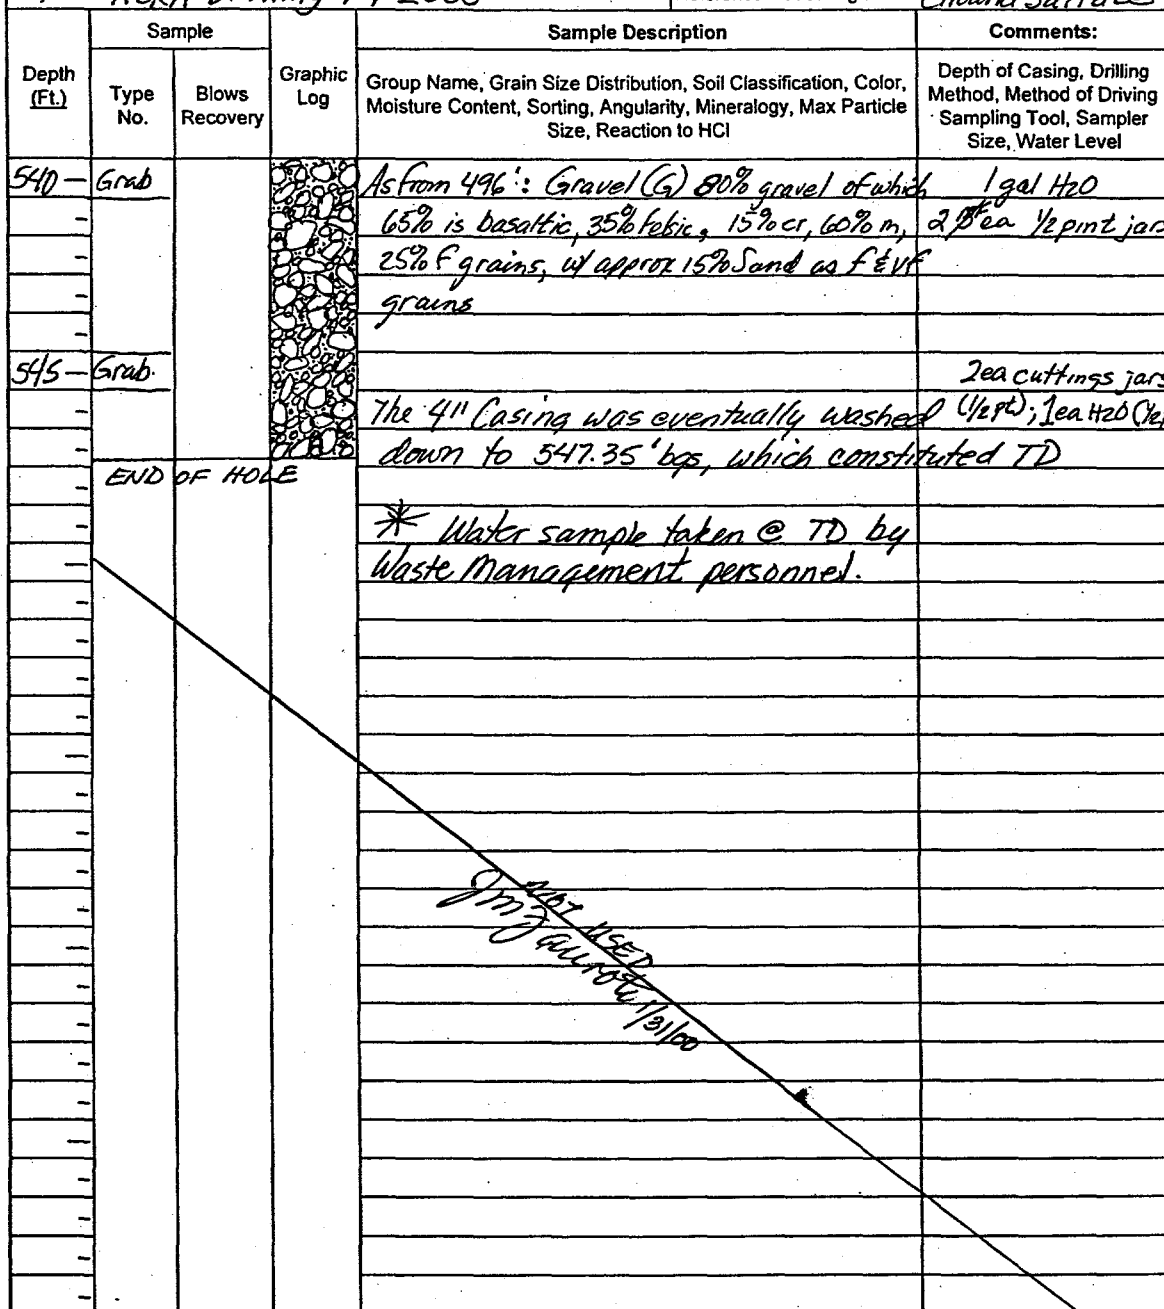 RCRA Drilling FY 2000
Ground Surface
Sample
Sample Description
Comments:
Depth
(Ft.)
Type
No.
Blows
Recovery
Graphic
Log
Group Name, Grain Size Distribution, Soil Classification, Color,
Moisture Content, Sorting, Angularity, Mineralogy, Max Particle
Size, Reaction to HCl
Depth of Casing, Drilling
Method, Method of Driving
Sampling Tool, Sampler
Size, Water Level
540 Grab As from 496': Gravel (G) 80% gravel of which 1 gal H2O
65% is basaltic, 35% felsic, 15% cr, 60% m, 2 ea 1/2 pint jars
25% f grains, w/ approx 15% Sand as f & vf
grains
545 Grab. 2ea cuttings jars
The 4" Casing was eventually washed (1/2 pt); 1ea H2O
down to 547.35' bgs, which constituted TD
END OF HOLE
* Water sample taken @ TD by
Waste Management personnel.
NOT USED
1/31/00